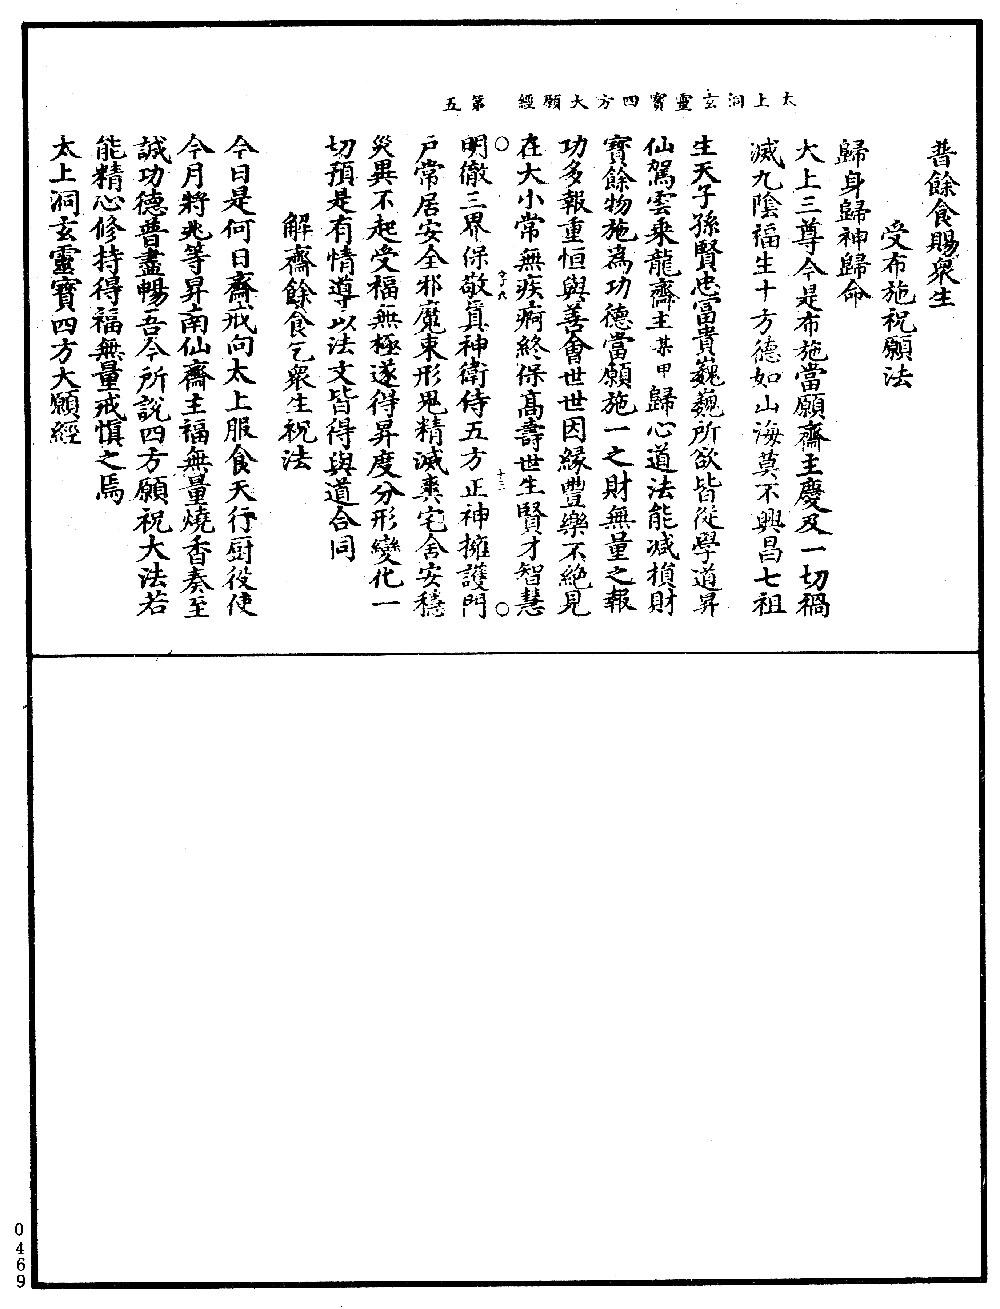 太上洞玄靈寶四方大願經　第五
普餘食賜衆生
受布施祝願法
歸身歸神歸命
大上三尊今是布施當願齋主慶及一切禍
滅九陰福生十方德如山海莫不興昌七祖
生天子孫賢忠富貴巍巍所欲皆從學道昇
仙駕雲乘龍齋主某甲歸心道法能减損財
寶餘物施爲功德當願施一之財無量之報
功多報重恒與善會世世因緣豐樂不絶見
在大小常無疾痾終保高壽世生賢才智慧
明徹三界保敬真神衛侍五方正神擁護門
户常居安全邪魔束形鬼精滅爽宅舍安穩
災異不起受福無極遂得昇度分形變化一
切預是有情導以法文皆得與道合同
解齋餘食乞衆生祝法
今日是何日齋戒向太上服食天行厨役使
今月將兆等昇南仙齋主福無量燒香奏至
誠功德普盡暢吾今所說四方願祝大法若
能精心修持得福無量戒慎之焉
太上洞玄靈寶四方大願經
0469